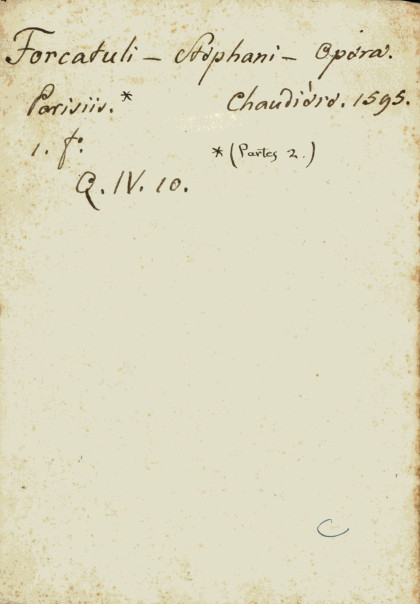 Forcatuli - Stéphani - Opéra.
Parisiis.* Chaudiére. 1595.
1. fo. *(Partes 2.)
Q. IV. 10.